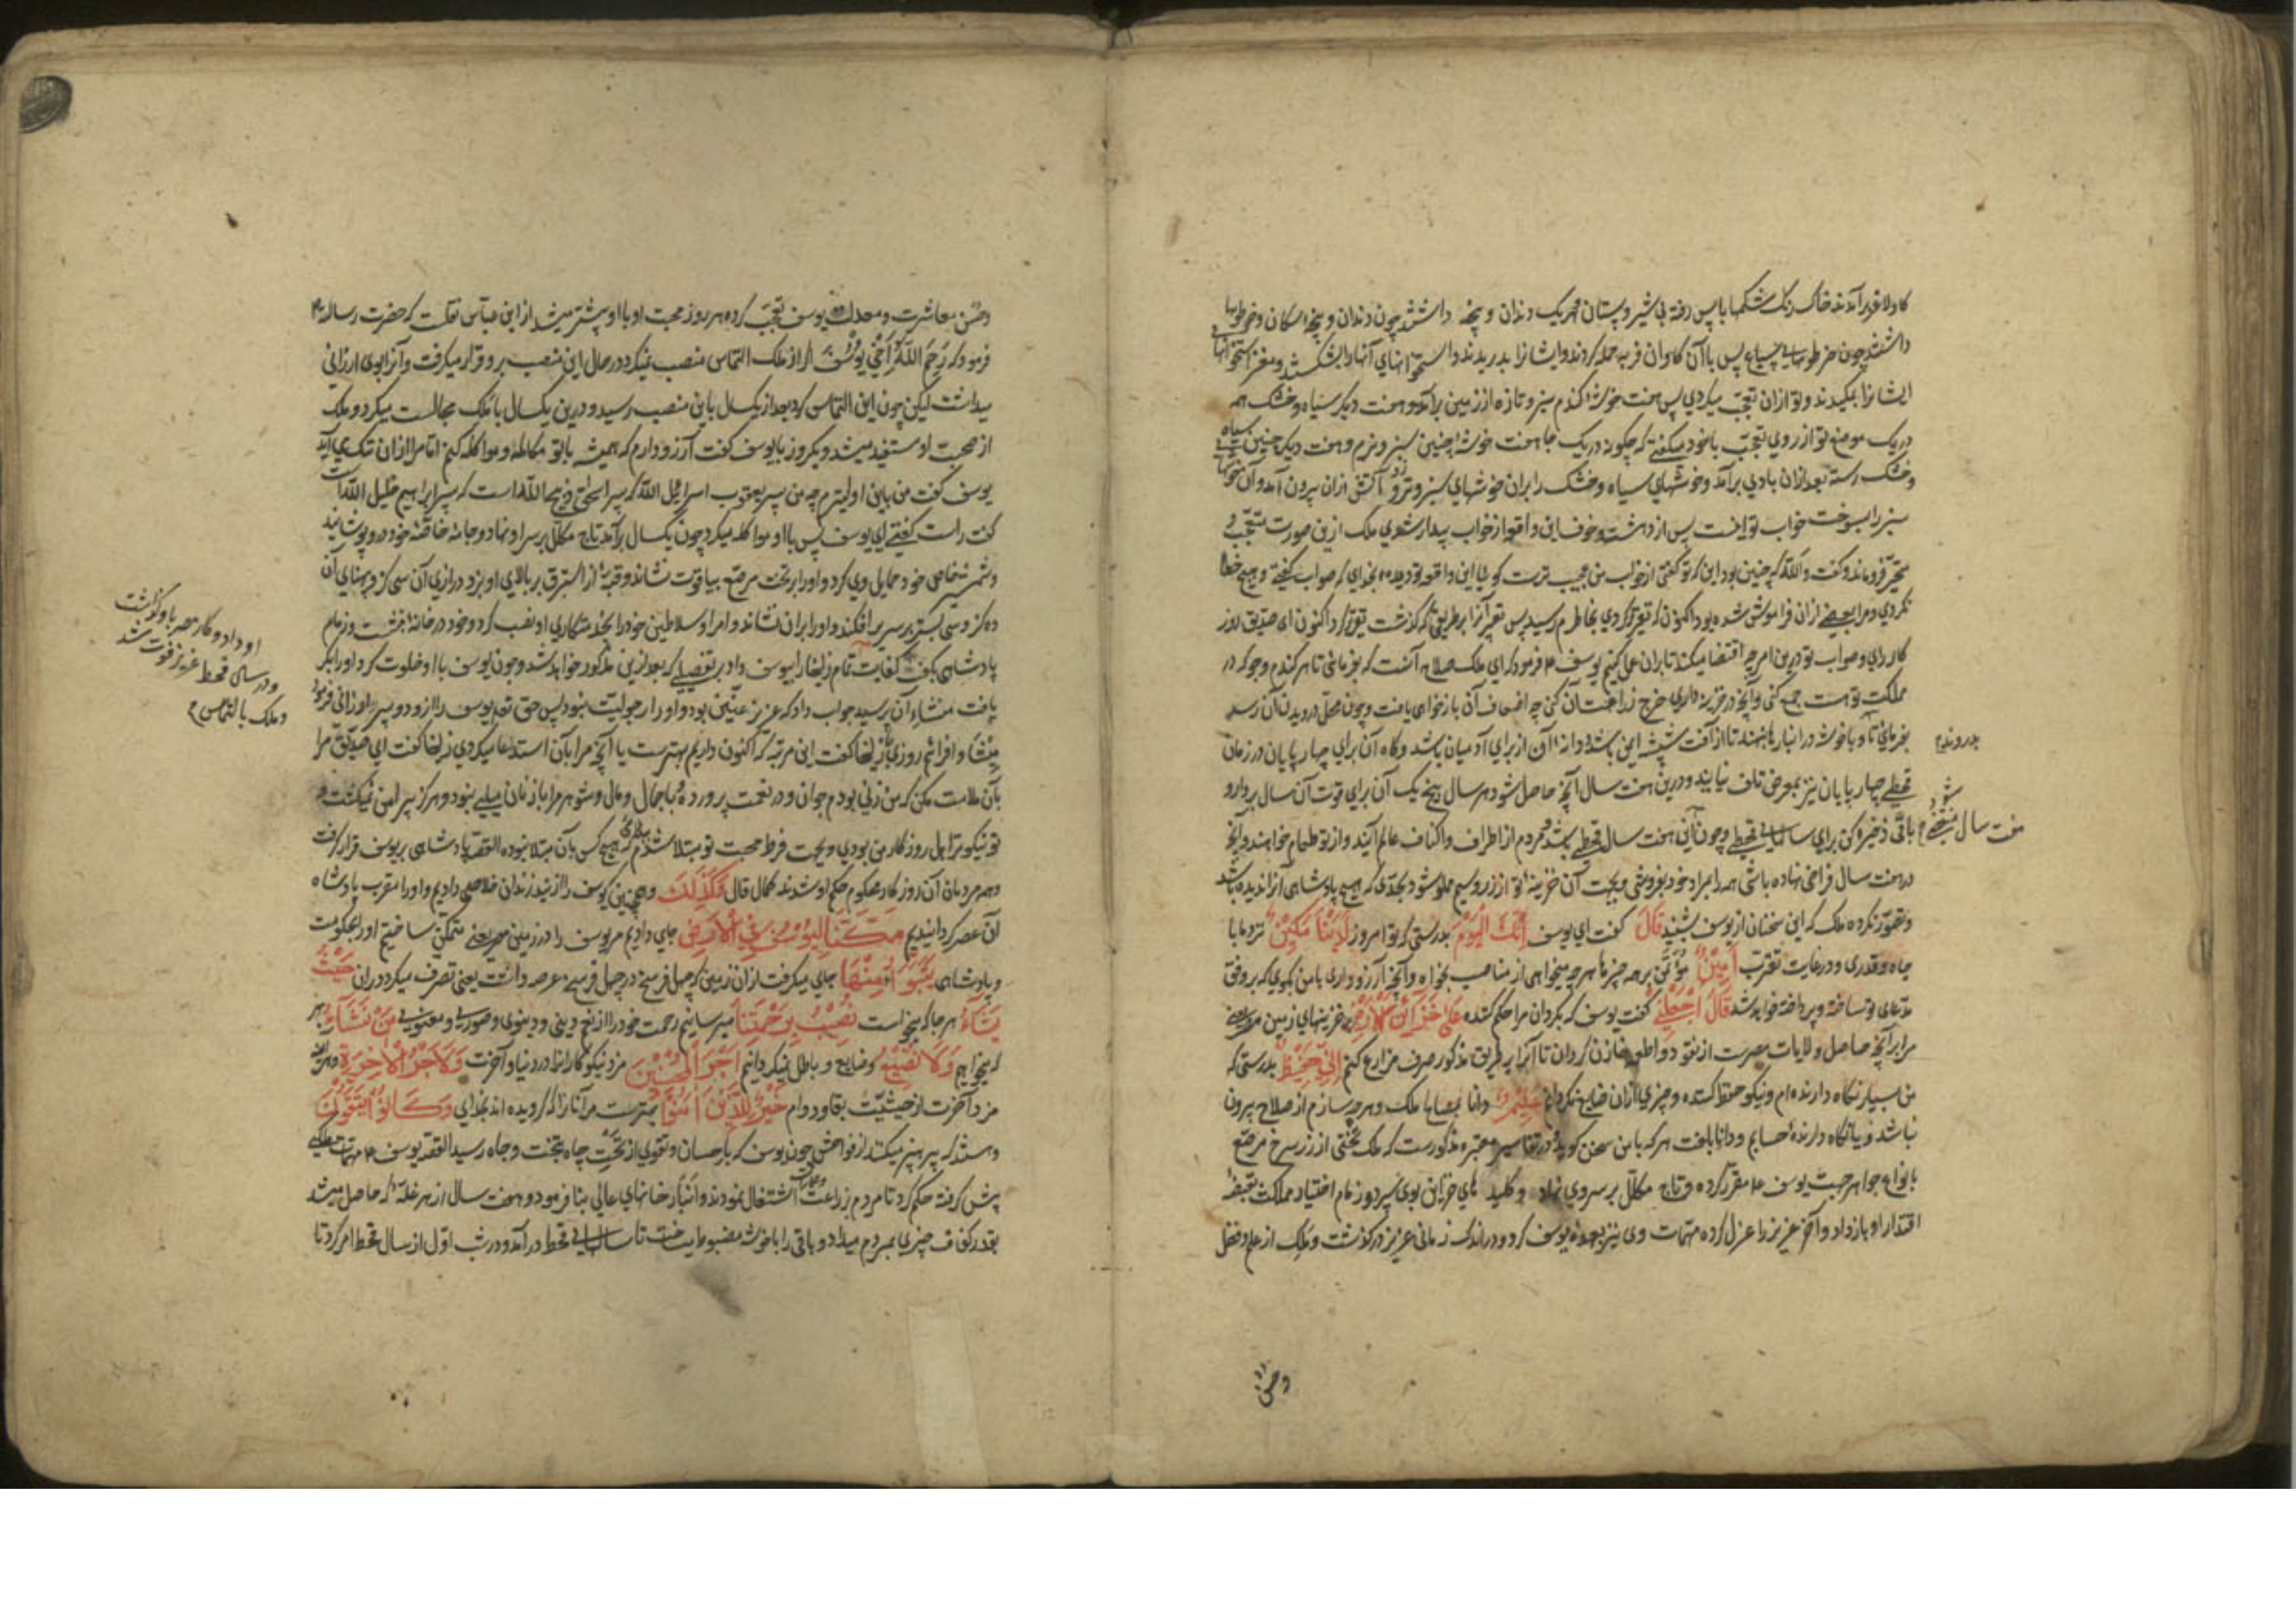 کاو لاغر برآمدند خاک رنگ شکمها باپس رفته بی شیر و پستان هر یک دندان و پنجه داشتند چون دندان و پنجه سکان و خرطومها
داشتند چون خرطومهای سباع پس باآن کاوان فربه حمله کردند و ایشانرا بدریدند و استخوانهای آنها را بشکستند و مغز استخوانها
ایشانرا بمکیدند و تو ازان تعجب میکردی پس هفت خوشه کندم سبز و تازه از زمین برآمد و هفت دیکر سیاه و خشک همه
در یک موضع تو از روی تعجب باخود میکفتی که چکونه در یک جا هفت خوشه چنین سبز و نرم و هفت دیکر چنین سیاه
و خشک رسته بعد ازان بادی برآمد و خوشهای سیاه و خشک را بران خوشهای سبز و تر زد و آتش ازان بیرون آمد و آن خوشها
سبز را بسوخت خواب تو اینست پس از دهشت و خوف این واقعه از خواب بیدار شدی ملک ازین صورت متعجب و
متحیر فرو ماند و کفت والله که چنین بود این که تو کفتی از خواب من عجیب ترست کویا این واقعه تو دیده بخدای که صواب کفتی و هیچ خطا
نکردی و مرا بعضی ازان فراموش شده بود اکنون که تقریر کردی بخاطرم رسید پس تعبیر آنرا بر طریقی که کذشت تقریر کرد اکنون ای صدیق در
کار رای و صواب تو درین امر چه اقتضا میکند تا بران عمل کنیم یوسف ع فرمود که ای ملک صلاح آنست که بفرمائی تا هر کندم و جو که در
مملکت تو هست جمع کنی و آنچه در خزینه داری خرج زراعتشان کنی چه اضعاف آن باز خواهی یافت و چون محل درویدن آن رسد
بفرمای تا آنرا باخوشه در انبارها بنهند تا از آفت شپشه ایمن باشد و دانه آن از برای آدمیان باشد و کاه آن برای چهارپایان در زمان
بدروند
قحطی چهارپایان نیز بمعرض تلف نیایند و درین هفت سال آنچه حاصل شود هر سال پنج یک آن برای قوت آن سال بردار و
باقی ذخیره کن برای سالهای قحطی و چون آن هفت سال قحطی باشد مردم از اطراف و اکناف عالم آیند و از تو طعام خواهند و آنچه
در هفت سال فراخی نهاده باشی همه را بمراد خود بفروشی و بجهت آن خزینه تو از زر و سیم مملو شود بحدی که هیچ پادشاهی آنرا ندیده باشد
و تصور نکرده ملک که این سخنان از یوسف بشنید قَالَ کفت ای یوسف إِنَّكَ الْيَوْمَ بدرستی که تو امروز لَدَيْنَا مَكِينٌ نزد ما با
جاه و قدری و در غایت تقرب أَمِينٌ مؤتمن بر همه چیزها هر چه میخواهی از مناصب بخواه و آنچه آرزو داری بامن بکوی که بر وفق
مدعای تو ساخته و پرداخته خواهد شد قَالَ اجْعَلْنِي کفت یوسف که بکردان مرا حکم کننده عَلَىٰ خَزَائِنِ الْأَرْضِ بر خزینهای زمین مصر یعنی
مرا بر آنچه حاصل ولایات مصرست از نقود و اطعمه خازن کردان تا آنرا بر طریق مذکور صرف مزارع کنم إِنِّي حَفِيظٌ بدرستی که
من بسیار نکاه دارنده ام و نیکو حفظ کننده و چیزی ازان ضایع نکردانم عَلِيمٌ دانا بمصالح ملک و هر چه سازم از صلاح بیرون
نباشد و یا نکاه دارنده حسابم و دانا بلغت هر که بامن سخن کوید و در تفاسیر معتبره مذکورست که ملک تختی از زر سرخ مرصع
بانواع جواهر جهت یوسف ع مقرر کرده و تاج مکلل بر سر وی نهاد و کلیدهای خزاین بوی سپرد و زمام اختیار مملکت بقبضه
اقتدار او باز داد و آخر عزیز را عزل کرده مهمات وی نیز بعهده یوسف کرد و در اندک زمانی عزیز درکذشت و ملک از علم و فضل
وحسن
وحسن معاشرت و معدلت یوسف تعجب کرده هر روز محبت او با او بیشتر میشد از ابن عباس نقلست که حضرت رسالت
فرمود که رَحِمَ اللهُ أَخِي يُوسُفَ اکر از ملک التماس منصب نمیکرد در حال این منصب برو قرار میکرفت و آنرا بوی ارزانی
میداشت لیکن چون این التماس کرد بعد از یکسال باین منصب رسید و درین یکسال با ملک مجالست میکرد و ملک
از صحبت او مستفید میشد و یکروز با یوسف کفت آرزو دارم که همیشه باتو مکالمه و مواکله کنم اما مرا ازان ننک می آید
یوسف کفت من باین اولیترم چه من پسر یعقوب اسرائیل الله که پسر اسحق ذبیح الله است که پسر ابراهیم خلیل الله است
کفت راست کفتی ای یوسف پس با او مواکله میکرد چون یکسال برآمد تاج مکلل بر سر او نهاد و جامه خاصه خود درو پوشانید
و شمشیر خاص خود حمایل وی کرد و او را بر تخت مرصع بیاقوت نشاند و قبه از استبرق بر بالای او بزد درازی آن سی کز و پهنای آن
ده کز و سی بستر بر سریر افکند و او را بران نشاند و امرا و سلاطین خود را بخدمتکاری او نصب کرد و خود در خانه بنشست و زمام
پادشاهی بکف کفایت تمام زلیخا را بیوسف داد بر تفصیلی که بعد ازین مذکور خواهد شد و چون یوسف با او خلوت کرد او را بکر
یافت منشاء آن پرسید جواب داد که عزیز عنین بود و او را رجولیت نبود پس حق تعالی یوسف را ازو دو پسر ارزانی فرمود
او داد و کار مصر باو کذاشت
و در سال قحط عزیز فوت شد
و ملک بالتماس
میشا و افرائیم روزی بازلیخا کفت این مرتبه که اکنون داریم بهترست یا آنچه مرا بآن استدعا میکردی زلیخا کفت ای صدیق مرا
بآن ملامت مکن که من زنی بودم جوان و در نعمت پرورده و باجمال و مال و شوهر مرا بازنان میلی نبود و هرکز پیرامن من نمیکشت و
تو نیکوترین اهل روزکار من بودی و بجهت فرط محبت تو مبتلا شدم که هیچ کس بآن مبتلا نبوده القصه پادشاهی بر یوسف قرار کرفت
و همه مردمان آن روزکار محکوم حکم او شدند کمال قال وَكَذَٰلِكَ و همچنین که یوسف را از بند زندان خلاصی دادیم و او را مقرب پادشاه
آن عصر کردانیدیم مَكَّنَّا لِيُوسُفَ فِي الْأَرْضِ جای دادیم مر یوسف را در زمین مصر یعنی متمکن ساختیم او را بحکومت
و پادشاهی يَتَبَوَّأُ مِنْهَا جای میکرفت ازان زمین که چهل فرسخ در چهل فرسخ عرصه داشت یعنی تصرف میکرد دران حَيْثُ
يَشَاءُ هر جا که میخواست نُصِيبُ بِرَحْمَتِنَا میرسانیم رحمت خود را از نعم دینی و دنیوی و صوری و معنوی مَنْ نَشَاءُ بهر
که میخواهیم وَلَا نُضِيعُ و ضایع و باطل نمیکردانیم أَجْرَ الْمُحْسِنِينَ مزد نیکوکاران را در دنیا و آخرت وَلَأَجْرُ الْآخِرَةِ و هر آینه
مزد آخرت از حیثیت بقا و دوام خَيْرٌ لِلَّذِينَ آمَنُوا بهترست مر آنانرا که کرویده اند بخدای وَكَانُوا يَتَّقُونَ
و هستند که پرهیز میکنند از فواحش چون یوسف که باحسان و تقوی از تحت چاه بتخت و جاه رسید القصه یوسف ع مهمات ملکی
پیش کرفته حکم کرد تا مردم بزراعت اشتغال نمودند و انبار خانهای عالی بنا فرمود و هفت سال از هر غله که حاصل میشد
بقدر کفاف چیزی بمردم میداد و باقی را با خوشه مضبوط میساخت تا سالهای قحط درآمد و در شب اول از سال قحط امر کرد تا